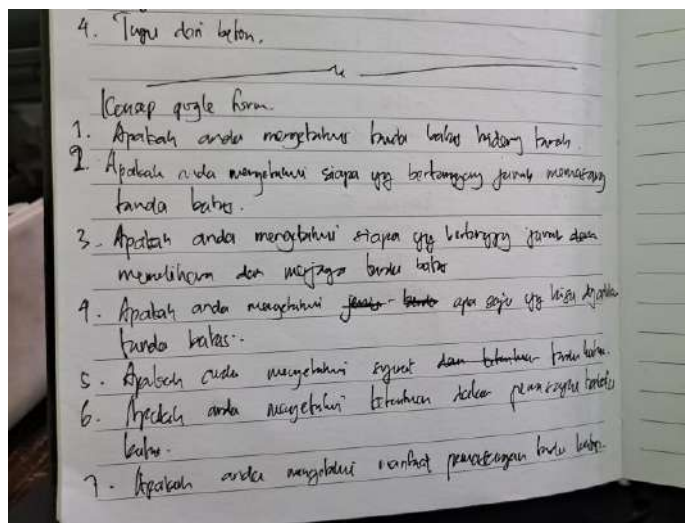 4. Tugu dari beton.
Konsep google form.
1. Apakah anda mengetahui tanda batas bidang tanah.
2. Apakah anda mengetahui siapa yg bertanggung jawab memasang
tanda batas.
3. Apakah anda mengetahui siapa yg bertanggung jawab
memelihara dan menjaga tanda batas
4. Apakah anda mengetahui apa saja yg bisa
tanda batas.
5. Apakah anda mengetahui syarat tanda batas.
6. Apakah anda mengetahui ketentuan dalam pemasangan
batas.
7. Apakah anda mengetahui manfaat pemasangan tanda batas.